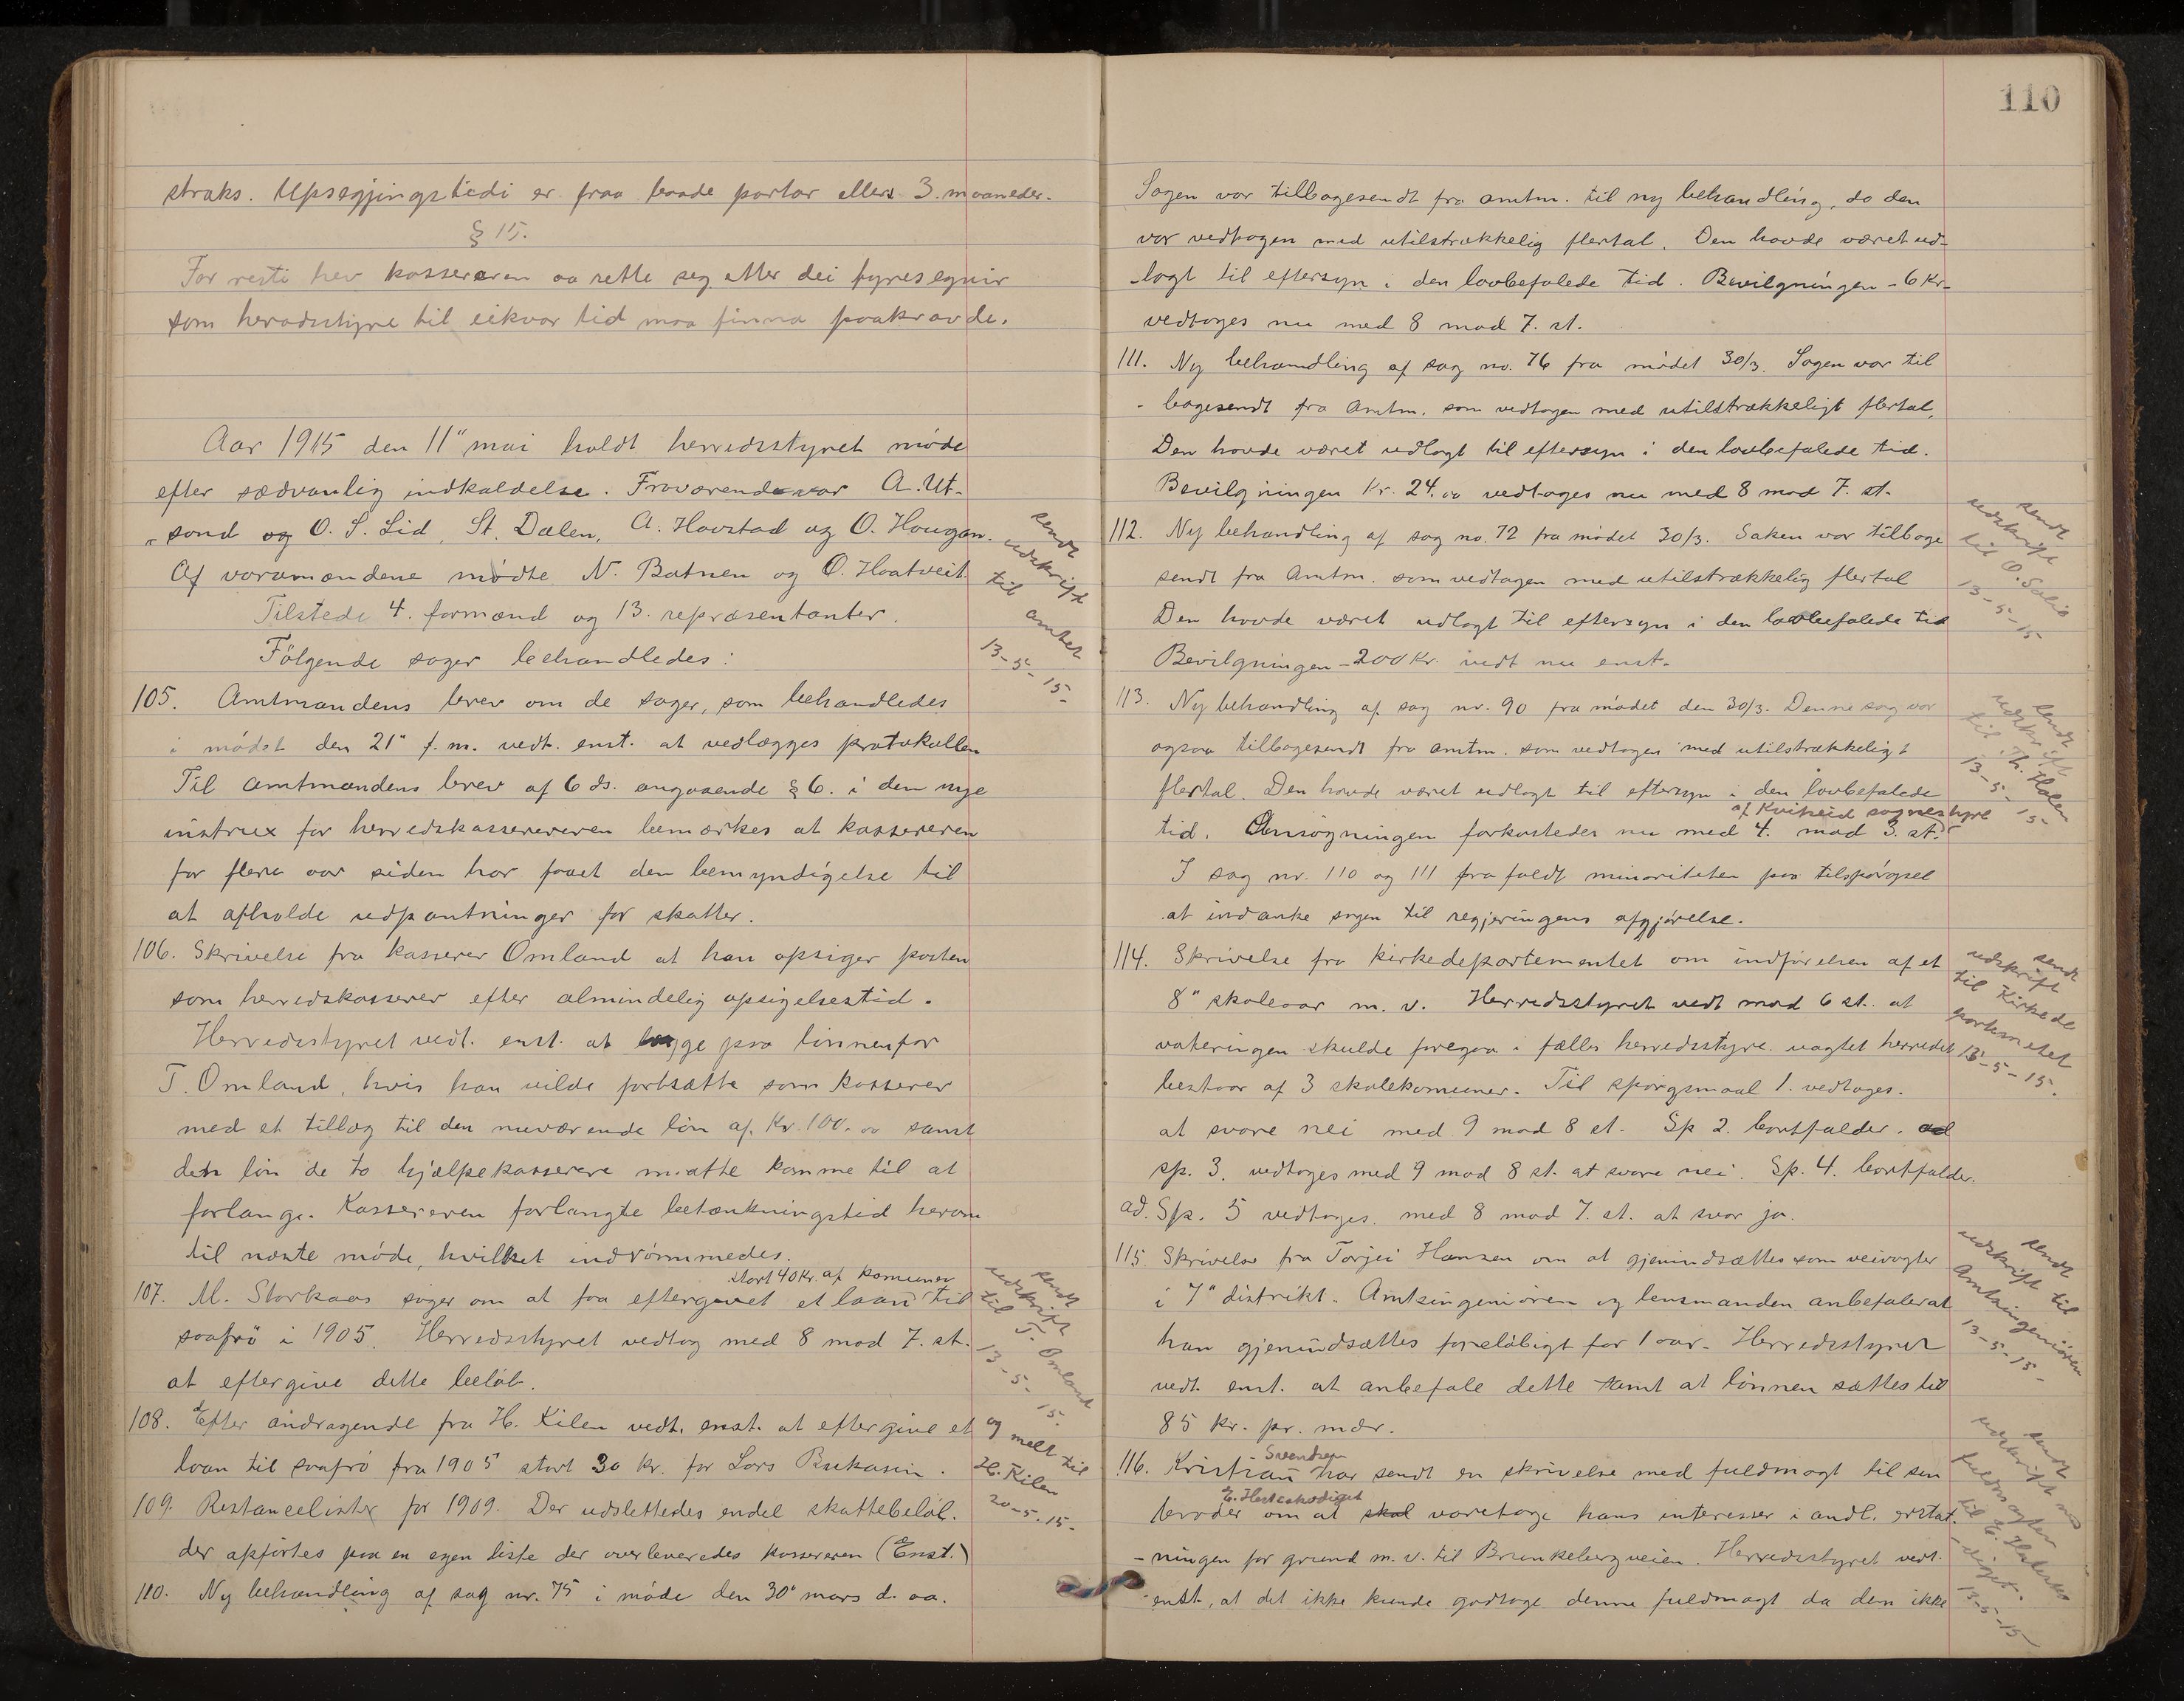 straks. Upsegjingstidi er fraa baade partar ellers 3. maaneder.
§ 15.
For resti hev kassereren aa rette seg etter dei fyresegnir
som heradsstyre til eikvar tid maa finna paakravde.
Aar 1915 den 11" mai holdt herredsstyret møde
efter sædvanlig indkaldelse. Fraværende var A. Ut-
sond og O. S. Lid, St. Dalen, A. Havstad og O. Haugan.
Af varamændene mødte N. Batnen og O. Hoatveit.
Tilstede 4. formænd og 13. repræsentanter.
Følgende sager behandledes:
sendt
udskrift
til amtet
13-5-15-
105. Amtmandens brev om de sager, som behandledes
i mødet den 21" f. m. vedt. enst. at vedlægges protokollen
Til amtmandens brev af 6 ds. angaaende § 6. i den nye
instrux for herredskassereren bemærkes at kassereren
for flere aar siden har faaet den bemyndigelse til
at afholde udpantninger for skatter.
106. Skrivelse fra kasserer Omland at han opsiger posten
som herredskasserer efter almindelig opsigelsestid.
Herredsstyret vedt. enst. at lægge paa lønnen for
T. Omland, hvis han vilde fortsætte som kasserer
med et tillæg til den nuværende løn af Kr. 100.00 samt
den løn de to hjælpekasserere maatte komme til at
forlange. Kassereren forlangte betænkningstid herom
til næste møde, hvilket indrømmedes.
stort 40 Kr. af komunen
107. M. Storkaas søger om at faa eftergivet et laan til
saafrø i 1905. Herredsstyret vedtog med 8 mod 7. st.
at eftergive dette beløb.
sendt
udskrift
til T. Omland
13-5-15.
108. Efter andragende fra H. Kilen vedt. enst. at eftergive et
laan til saafrø fra 1905 stort 30 Kr. for Lars Buekasin.
og melt til
H. Kilen
20-5-15-
109. Restancelister for 1909. Der udslettedes endel skattebeløb.
der opførtes paa en egen liste der overleveredes kassereren (Enst.)
110. Ny behandling af sag nr. 75 i møde den 30" mars d. aa.
110
Sagen var tilbagesendt fra amtm. til ny behandling, da den
var vedtagen med utilstrækkelig flertal. Den havde været ud-
-lagt til eftersyn i den lovbefalede tid. Bevilgningen - 6 Kr-
vedtages nu med 8 mod 7. st.
111. Ny behandling af sag no. 76 fra mødet 30/3. Sagen var til
- bagesendt fra Amtm. som vedtagen med utilstrækkeligt flertal,
Den havde været udlagt til eftersyn i den lovbefalede tid.
Bevilgningen Kr. 24.00 vedtages nu med 8 mod 7. st.
112. Ny behandling af sag no. 72 fra mødet 30/3. Saken var tilbage
sendt fra Amtm. som vedtagen med utilstrækkelig flertal
Den havde været udlagt til eftersyn i den lovbefalede tid
Bevilgningen - 200 Kr. vedt nu enst.
sendt
udskrift
til O.
13-5-15
113. Ny behandling af sag nr. 90 fra mødet den 30/3. Denne sag var
ogsaa tilbagesendt fra amtm. som vedtagen med utilstrækkeligt
flertal. Den havde været udlagt til eftersyn i den lovbefalede
af Kviteid sognestyre
tid. Ansøgningen forkastedes nu med 4. mod 3. st.
sendt
udskrift
til Th. Holen
13-5-15-
I sag nr. 110 og 111 frafaldt minoriteten paa tilspørgsel
at indanke sagen til regjeringens afgjørelse.
114. Skrivelse fra kirkedepartementet om indførelsen af et
8" skoleaar m. v. Herredsstyret vedt mod 6 st. at
voteringen skulde foregaa i fælles herredsstyre uagtet herredet
bestaar af 3 skolekomuner. Til spørgsmaal 1. vedtages.
at svare nei med 9 mod 8 st. Sp 2. bortfalder. ad
sp. 3. vedtages med 9 mod 8 st. at svare nei. Sp. 4. bortfalder.
ad. Sp. 5 vedtages. med 8 mod 7. st. at svar ja.
sendt
udskrift
til Kirkede
partementet
13-5-15.
115. Skrivelse fra Torjei Hansen om at gjenindsættes som veivogter
i 7" distrikt. Amtsingeniøren og lensmanden anbefaler at
han gjenindsættes foreløbigt for 1 aar. Herredsstyret
vedt. enst. at anbefale dette samt at lønnen sættes til
85 Kr. pr. mdr.
sendt
udskrift til
Amtsingeniøren
13-5-15-
Svendsen
116. Kristian har sendt en skrivelse med fuldmagt til sin
broder om at skal varetage hans interesser i andl. erstat.
- ningen for grund m. v. til Brunkebergveien. Herredsstyret vedt.
enst, at det ikke kunde godtage denne fuldmagt da den ikke
sendt
udskrift med
fuldmagten
13-5-15